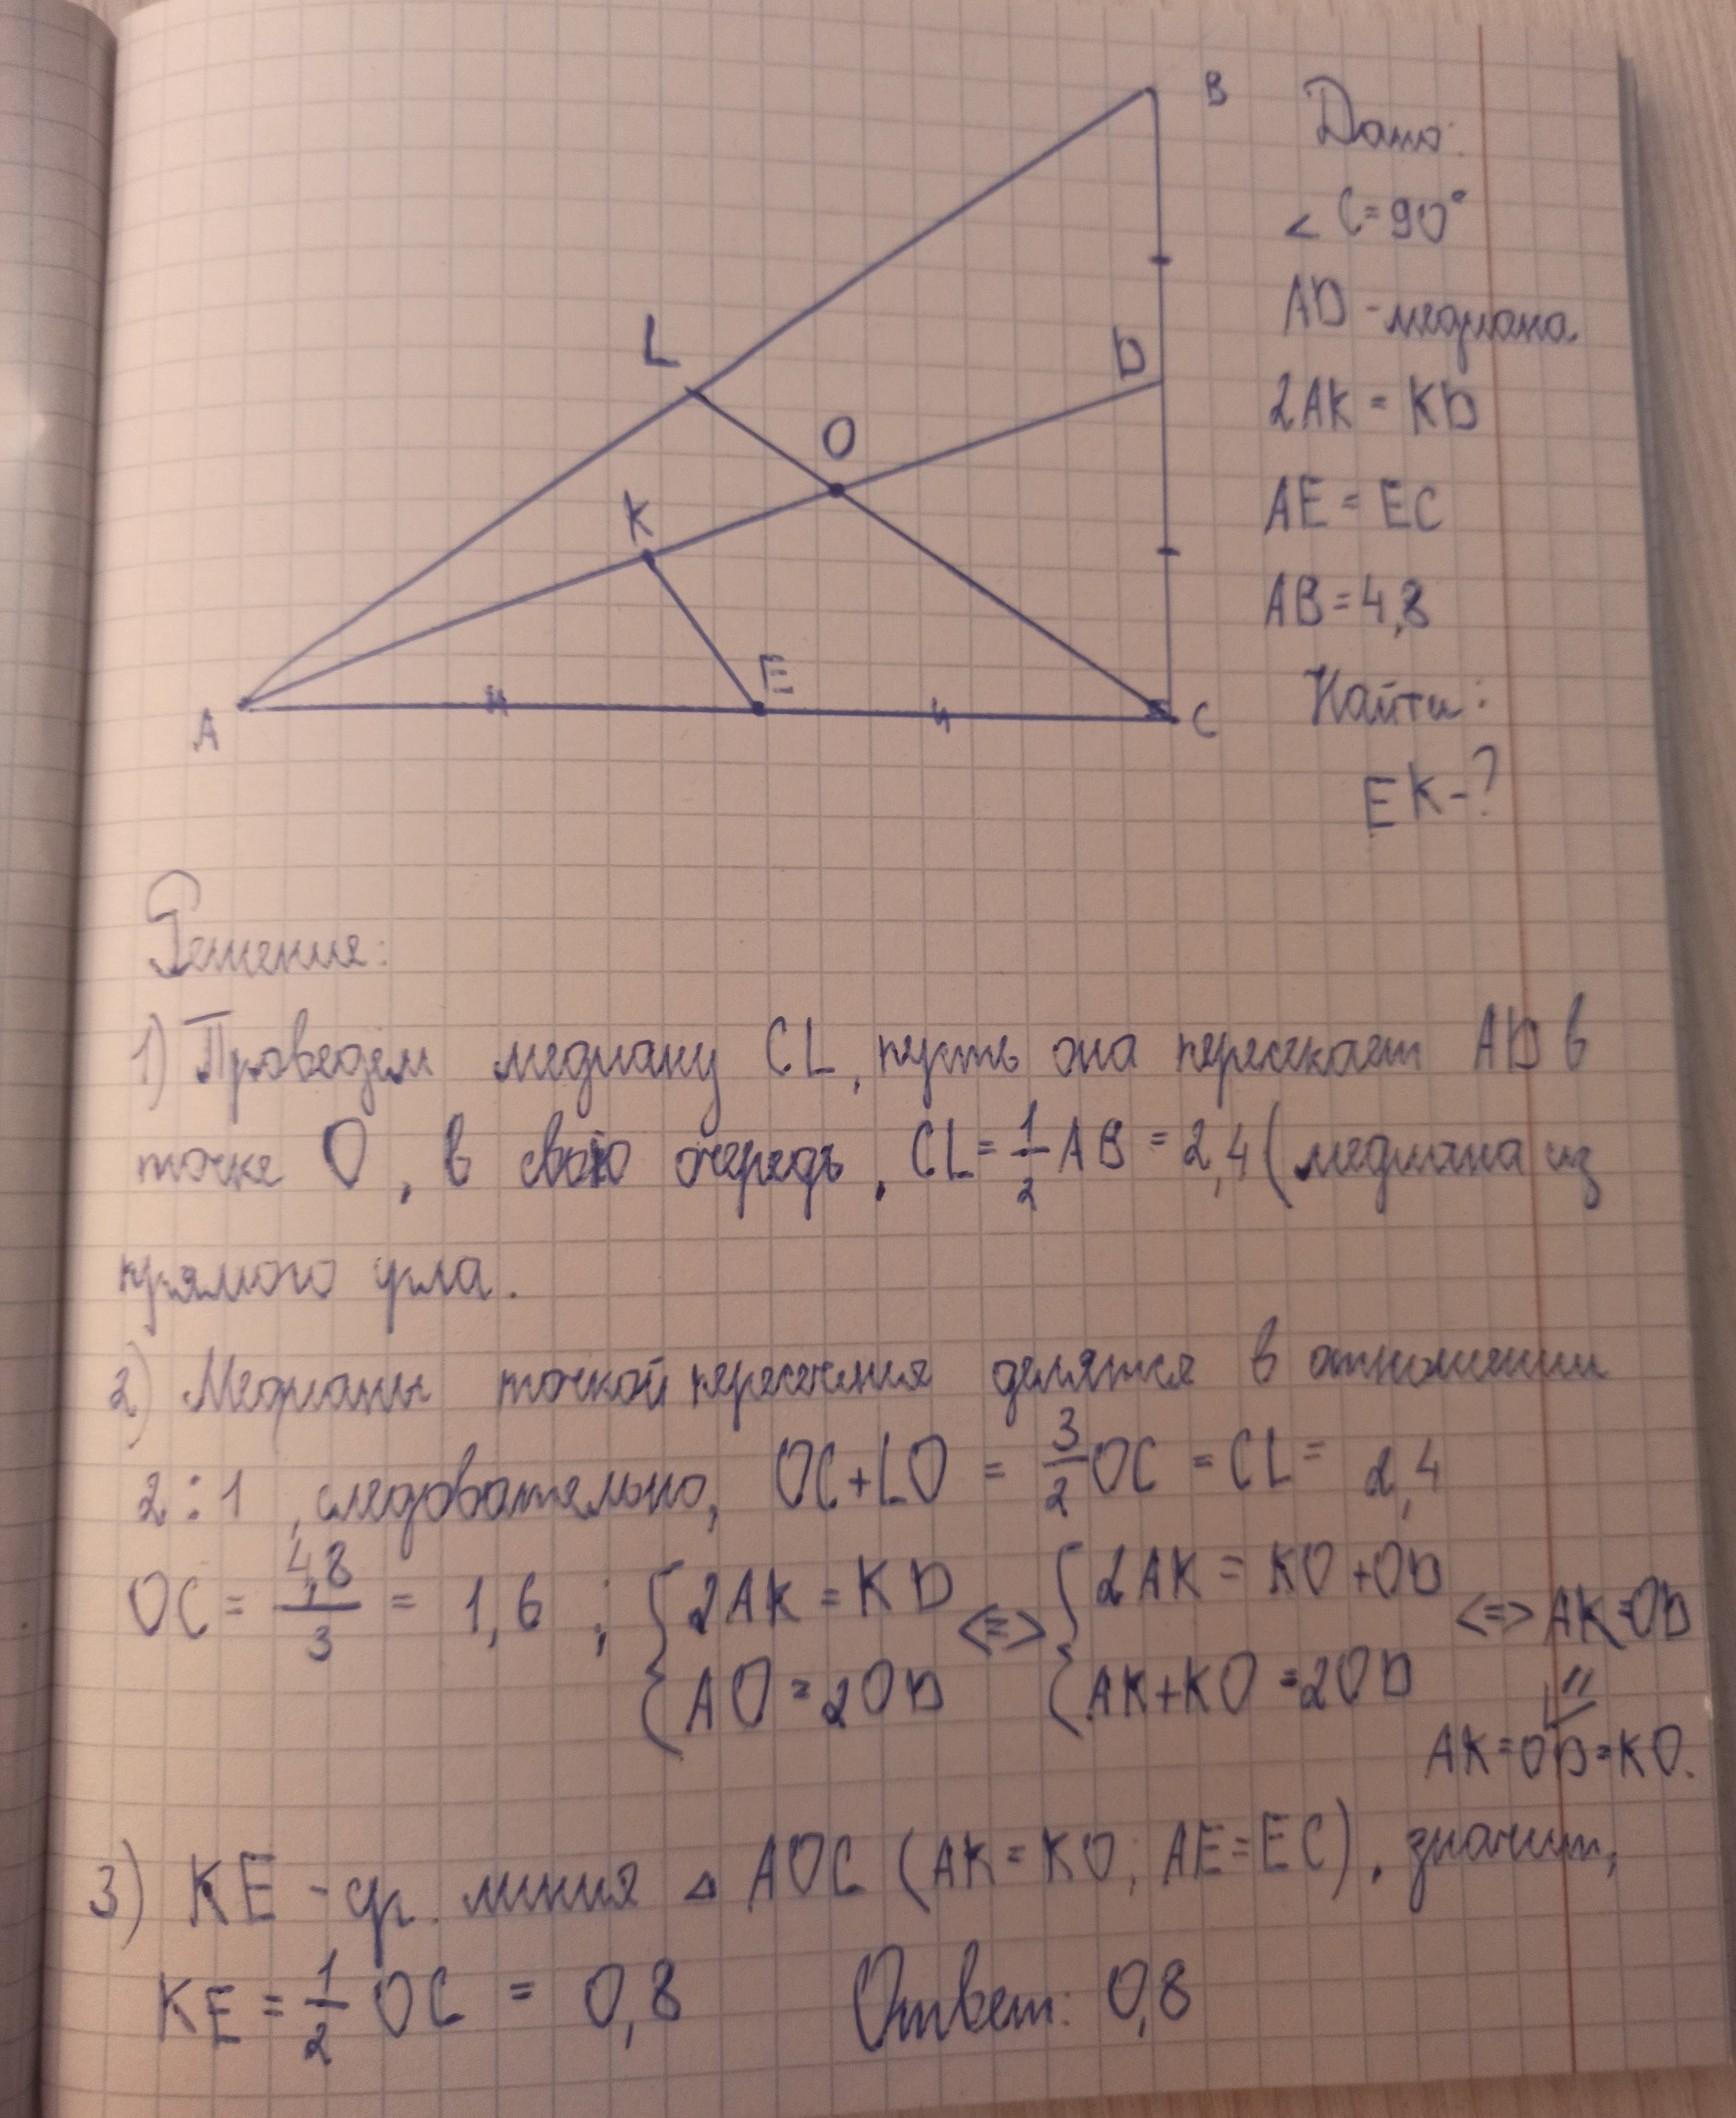 B
Дано:
∠ C=90°
AD - медиана
2AK = KD
AE = EC
AB = 4,8
Найти:
EK - ?
L
D
O
K
E
A
C
Решение:
1) Проведем медиану CL, пусть она пересекает AD в
точке O, в свою очередь, CL = 1/2 AB = 2,4 (медиана из
прямого угла.
2) Медианы точкой пересечения делятся в отношении
2:1, следовательно, OC+LO = 3/2 OC = CL = 2,4
OC = 4,8/3 = 1,6 ; { 2AK = KD <=> { 2AK = KO+OD <=> AK=OD
{ AO = 2OD { AK+KO = 2OD
AK=OD=KO.
3) KE - ср. линия △ AOC (AK = KO; AE=EC), значит,
KE = 1/2 OC = 0,8 Ответ: 0,8